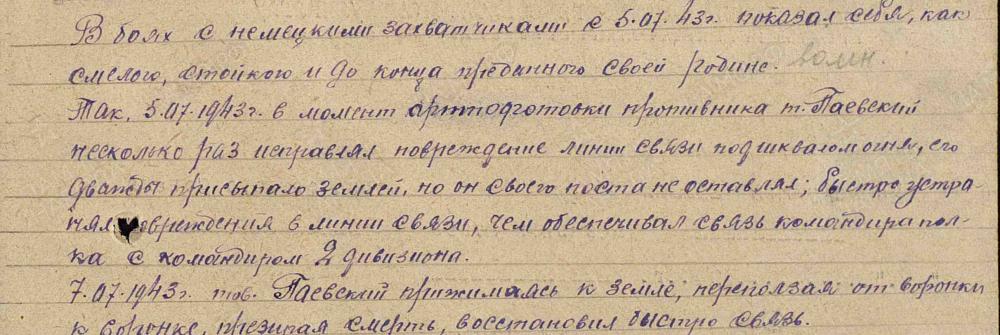 В боях с немецкими захватчиками с 5.07.43г. показал себя, как
смелого, стойкого и до конца преданного своей родине. воин.
Так, 5.07.1943г. в момент артподготовки противника т. Паевский
несколько раз исправлял повреждение линии связи под шквалом огня, его
дважды присыпало землей, но он своего поста не оставлял; быстро устра-
нял повреждения в линии связи, чем обеспечивал связь командира пол-
ка с командиром 2 дивизиона.
7.07.1943г. тов. Паевский прижимаясь к земле, переползая от воронки
к воронке, презирая смерть, восстановил быстро связь.